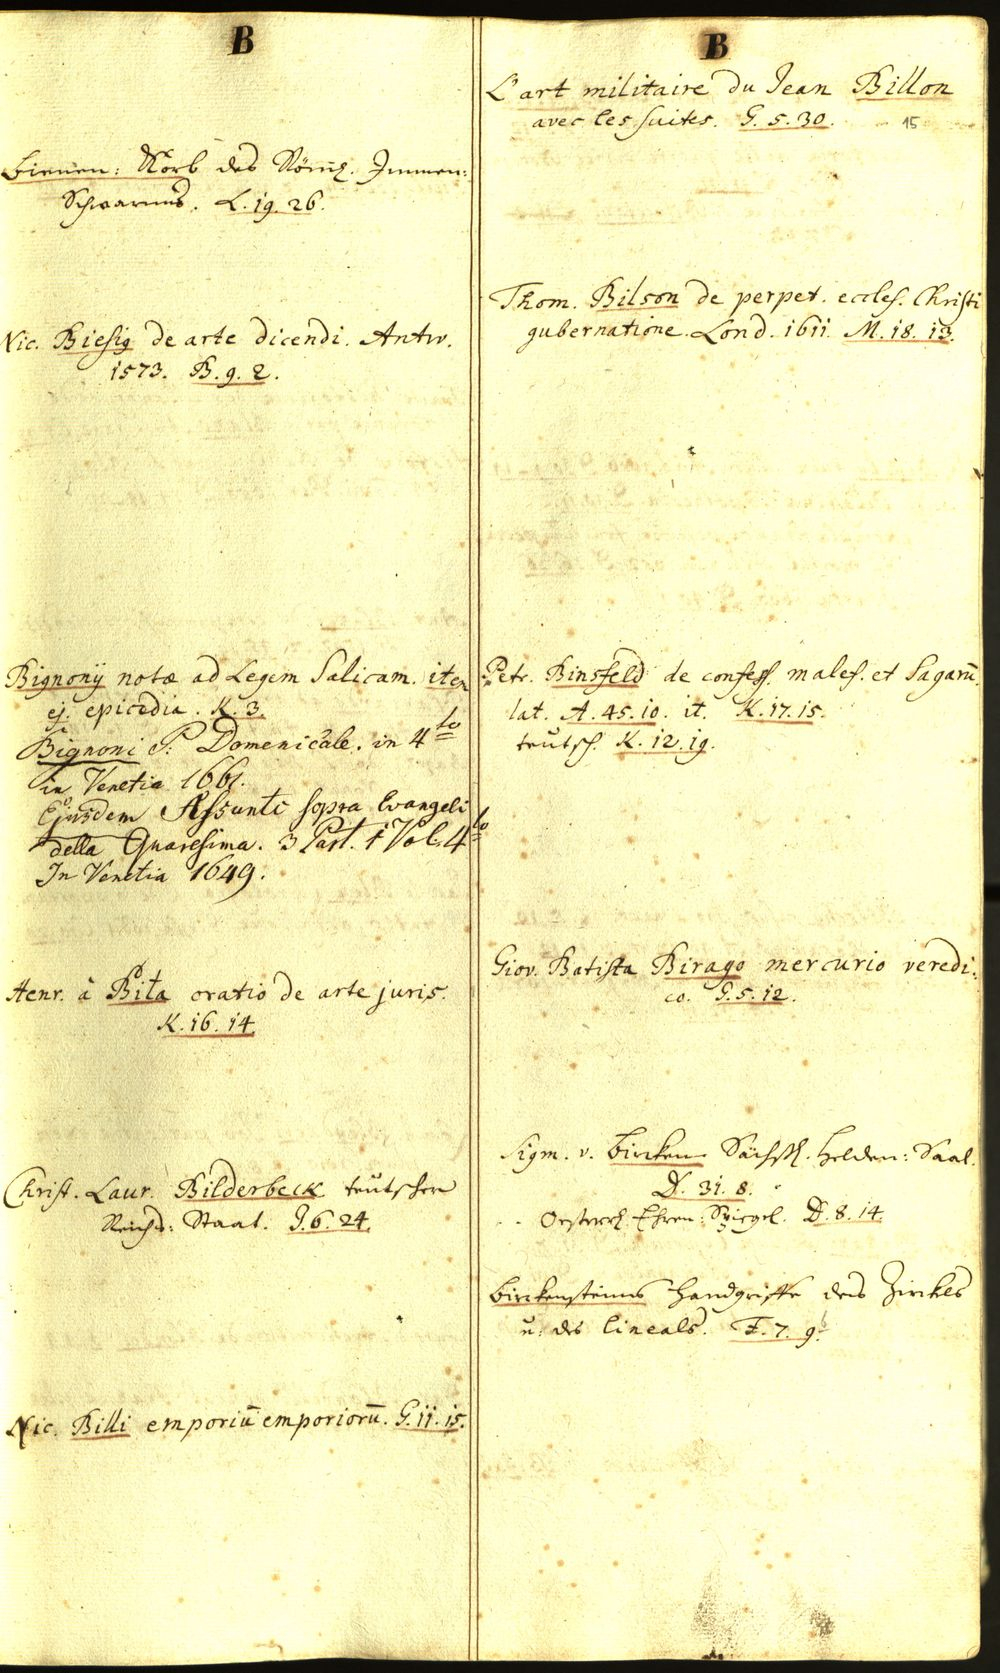 B
Bienen: Korb des Römisch. Immen:
Schwarms. L. 19. 26.
Nic. Biesig de arte dicendi. Antw.
1573. B. 9. 2.
Bignonij notæ ad Legem Salicam. item
ej. epicedia. K. 3.
Bignoni P. Domenicale. in 4to
in Venetia 1661.
Ejusdem Assunti sopra Evangeli
della Quaresima. 3 Part. 1 Vol. 4to
In Venetia 1649.
Henr. à Bila oratio de arte juris.
K. 16. 14.
Christ. Laur. Bilderbeck teutscher
Reichs: Staat. J. 6. 24.
Nic. Billi emporiū emporiorū. G. 11. 15.
B
L'art militaire du Jean Billon
avec les suites. G. 5. 30.
15
Thom. Bilson de perpet. eccles. Christi
gubernatione. Lond. 1611. M. 18. 13.
Petr. Binsfeld de confess. malef. et Sagarū.
lat. A. 45. 10. it. K. 17. 15.
teutsch. K. 12. 19.
Giov. Batista Birago mercurio veredi:
co. G. 5. 12.
Sigm. v. Bircken Sächß. Helden: Saal.
D. 31. 8.
Oesterr. Ehren: Spiegel. D. 8. 14.
Birckensteins Handgriffe des Zirckels
u. des Lineals. F. 7. 9.